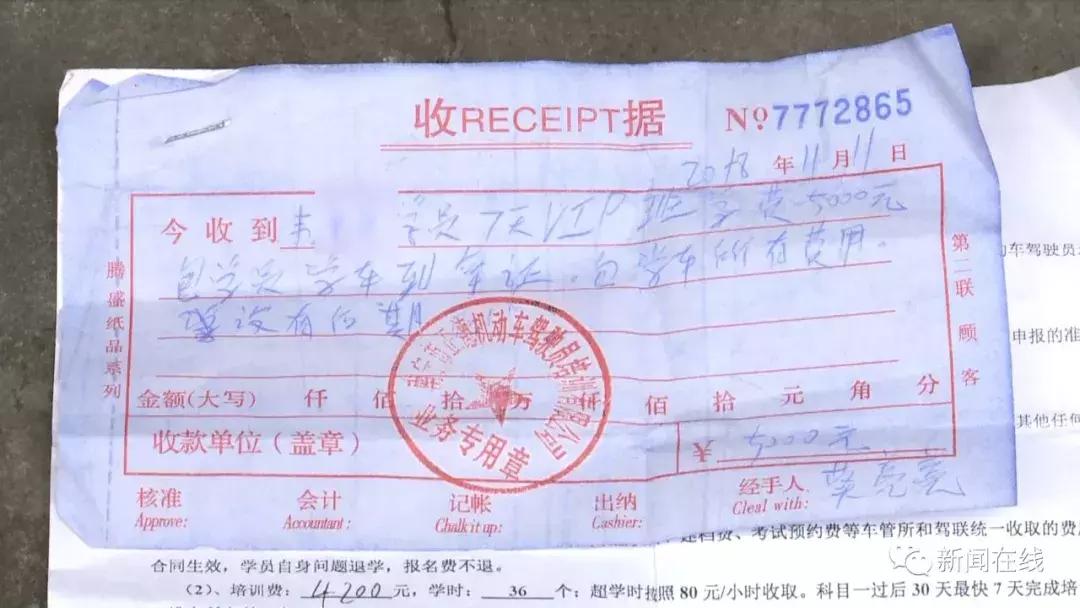 收RECEIPT据 No 7772865
2018年11月11日
今收到 学员7天VIP班学费5000元
包学员学车到拿证.包学车所有费用.
没有
金额(大写) 仟 佰 拾 万 仟 佰 拾 元 角 分
收款单位(盖章) ¥ 5000元
核准 会计 记帐 出纳 经手人
Approve: Accountant: Chalk it up: Cashier: Cleal with:
腾盛纸品系列
第二联 顾客
机动车驾驶员培训有限公司
业务专用章
动车驾驶员
申报的准
其他任何
建档费、考试预约费等车管所和驾联统一收取的费
合同生效，学员自身问题退学，报名费不退。
（2）、培训费： 4200 元，学时： 36 个；超学时按照 80 元/小时收取。科目一过后 30 天最快 7 天完成培
新闻在线